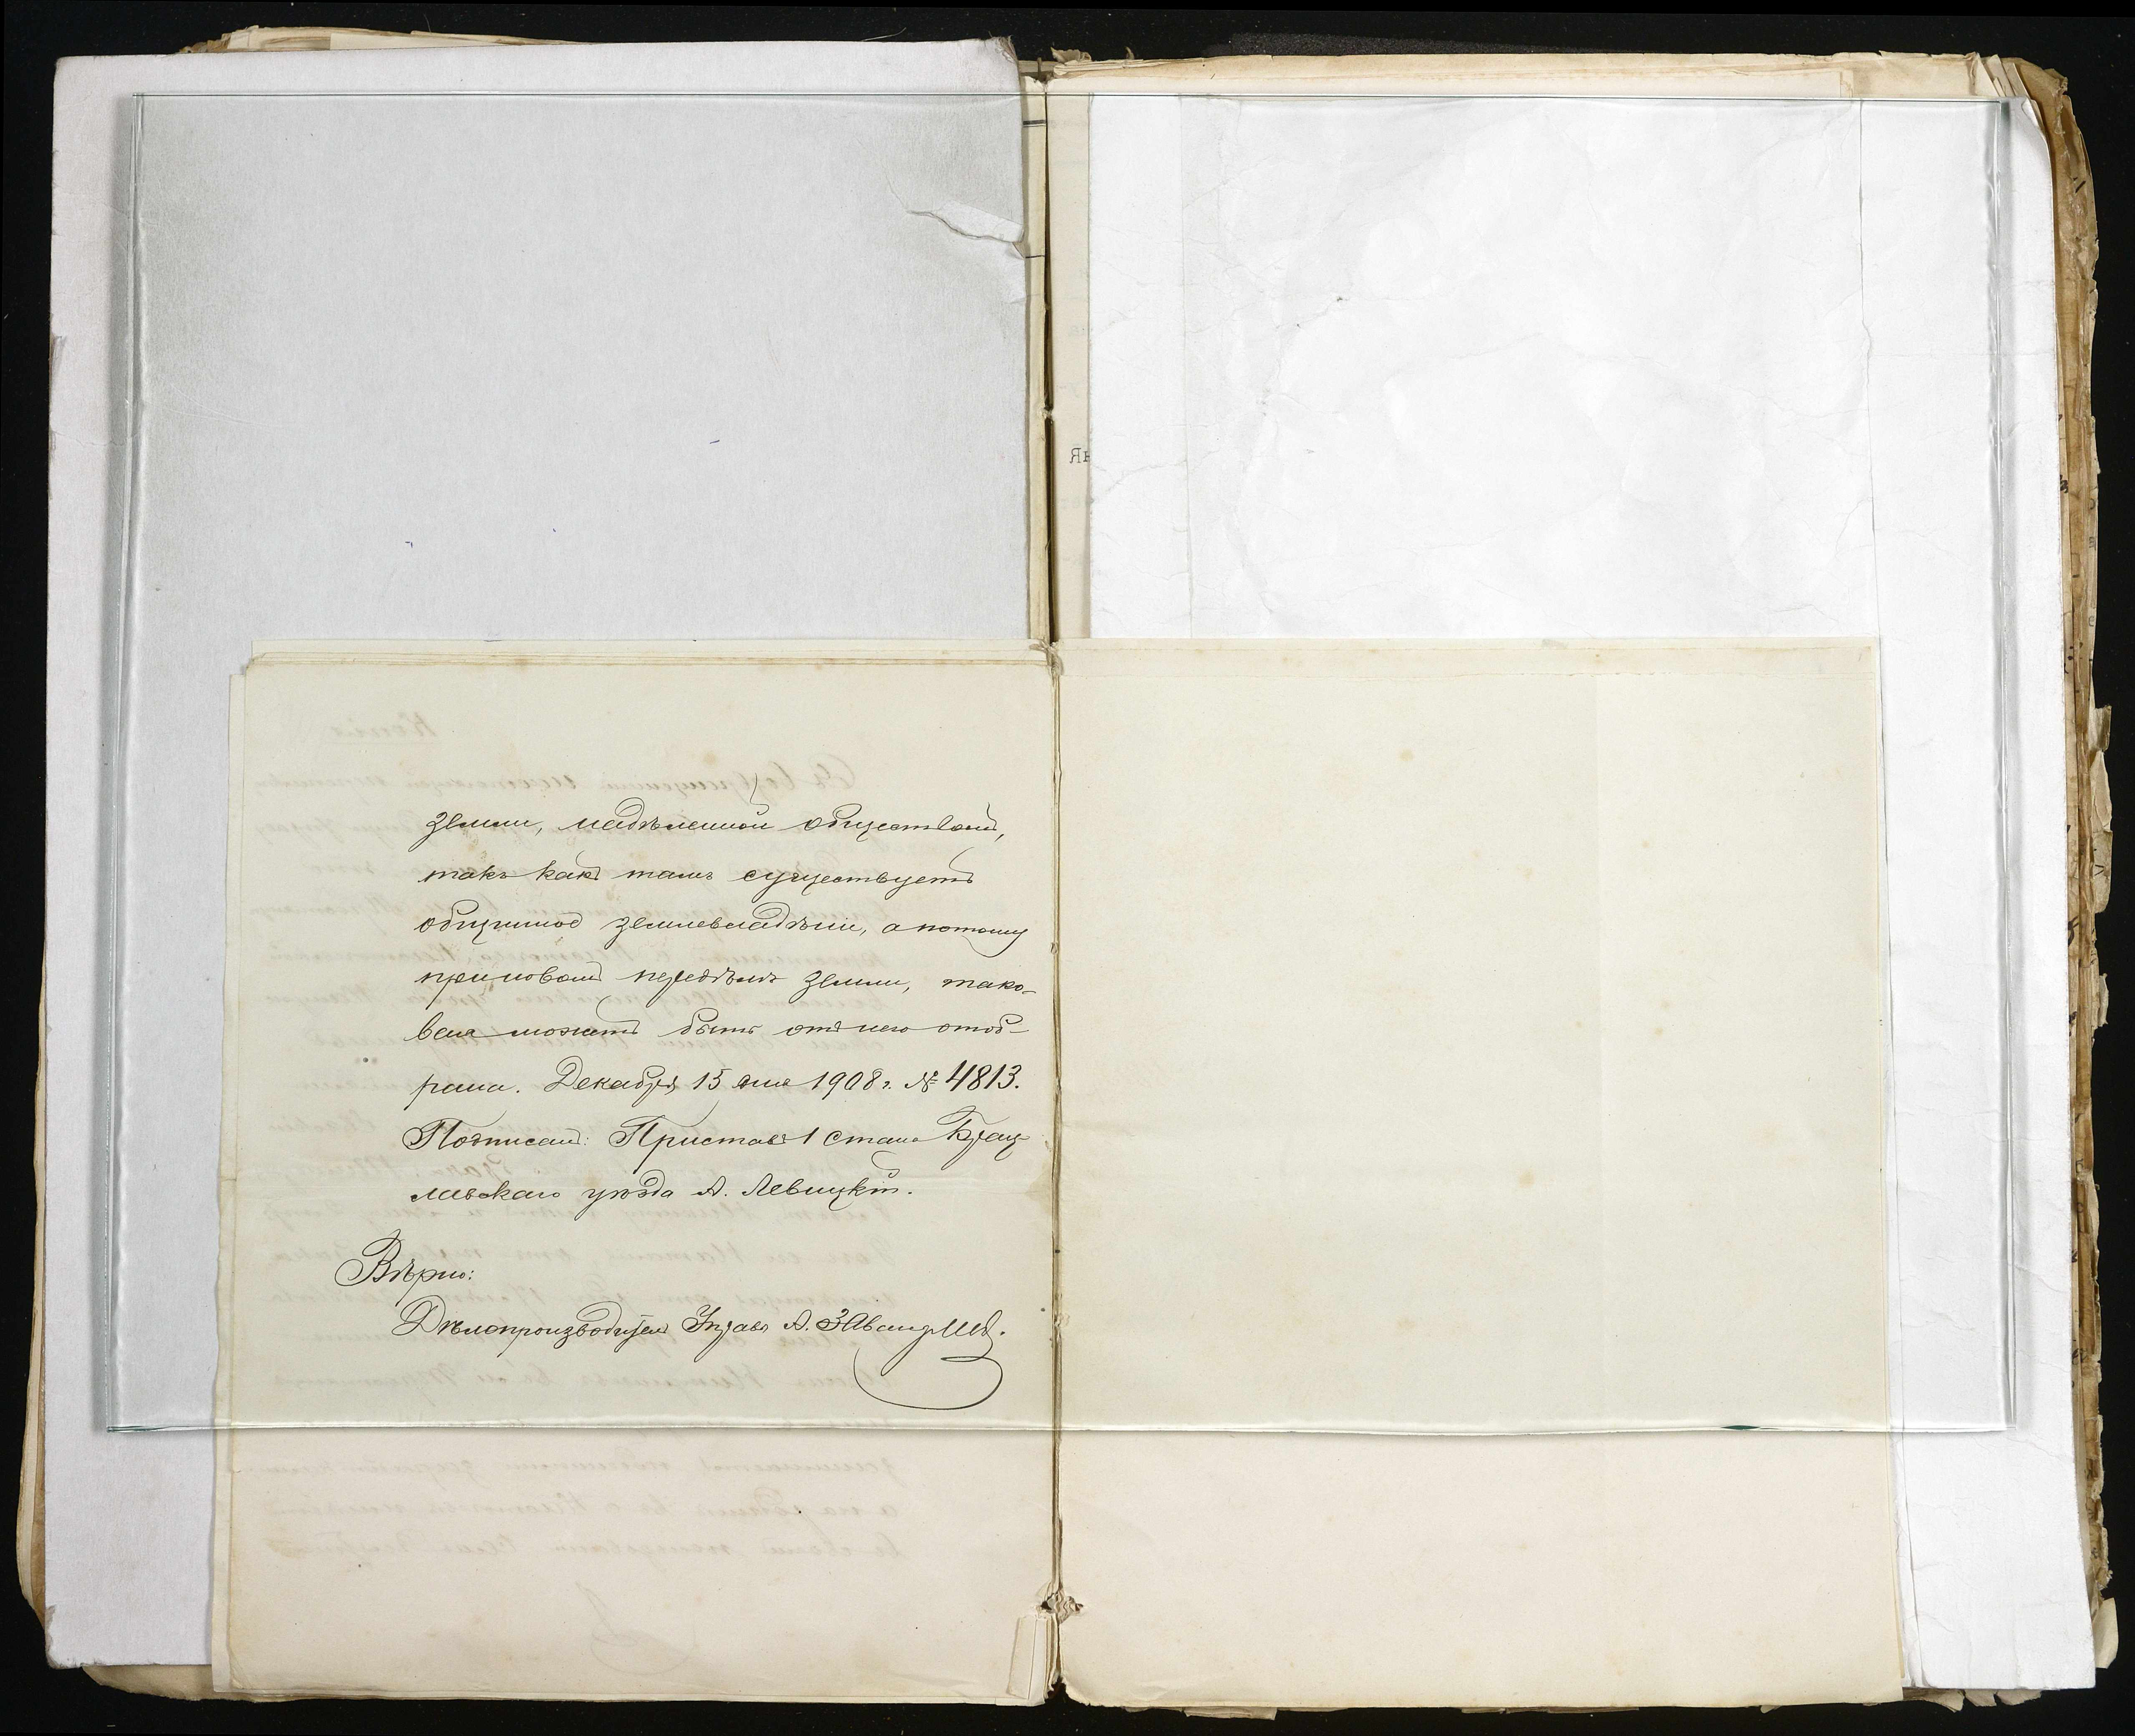 земли, надѣленной обществомъ,
такъ какъ тамъ существуетъ
общинное землевладѣніе, а потому
при новомъ передѣлѣ земли, тако-
вая можетъ быть отъ него отоб-
рана. Декабря 15 дня 1908 г. № 4813.
Подписалъ: Приставъ 1 стана Брац-
лавскаго уѣзда А. Левицкій.
Вѣрно:
Дѣлопроизводитель Управл А.